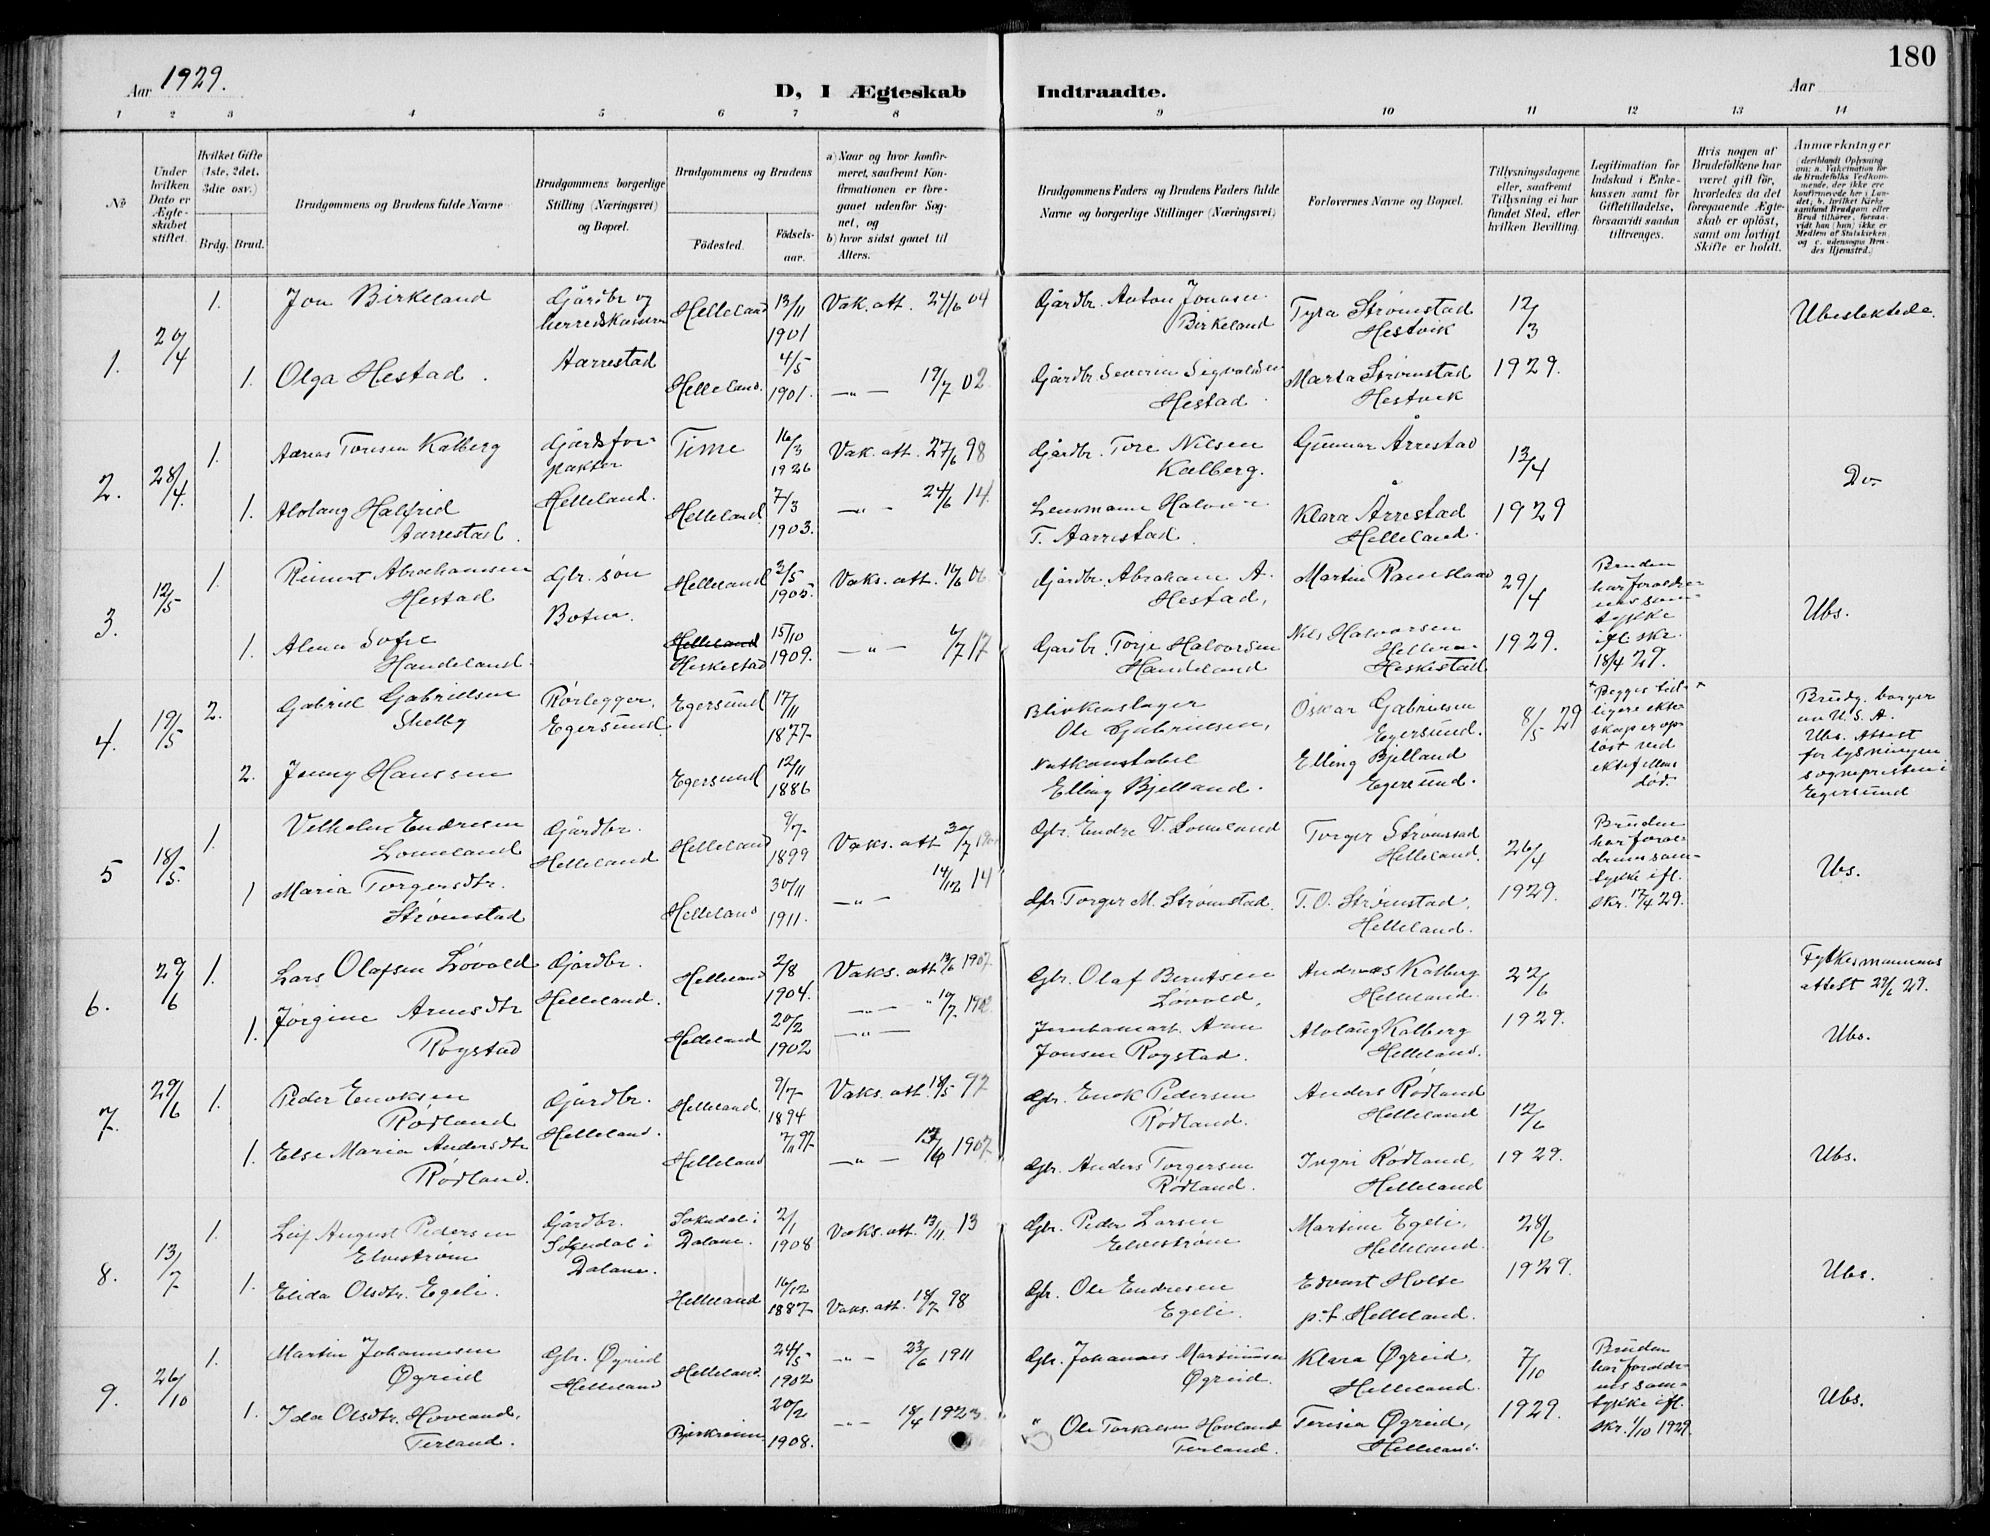 180
Aar 1929.
D, I Ægteskab Indtraadte.
Aar
1 2 3 4 5 6 7 8 9 10 11 12 13 14
No
Under hvilken Dato er Ægteskabet stiftet.
Hvilket Gifte (1ste, 2det, 3die osv.)
Brdg. Brud.
Brudgommens og Brudens fulde Navne
Brudgommens borgerlige Stilling (Næringsvei) og Bopæl.
Brudgommens og Brudens
Födested.
Födselsaar.
a) Naar og hvor konfirmeret, saafremt Konfirmationen er foregaaet udenfor Sognet, og
b) hvor sidst gaaet til Alters.
Brudgommens Faders og Brudens Faders fulde Navne og borgerlige Stillinger (Næringsvei)
Forlovernes Navne og Bopæl.
Tillysningsdagene eller, saafremt Tillysning ei har fundet Sted, efter hvilken Bevilling.
Legitimation for Indskud i Enkekassen samt for Giftetilladelse, forsaavidt saadan tiltrænges.
Hvis nogen af Brudefolkene har været gift för, hvorledes da det foregaaende Ægteskab er oplöst, samt om lovligt Skifte er holdt.
Anmærkninger (deriblandt Oplysning om: a. Vakcination for de Brudefolks Vedkommende, der ikke ere konfirmerede her i Landet; b. hvilket Kirkesamfund Brudgom eller Brud tilhörer, forsaavidt han (hun) ikke er Medlem af Statskirken, og c. udensogns Brudes Hjemsted.)
1. 20/4 1. Jon Birkeland Gårdbr. og herredskasserer Helleland 13/11 1901 Vak. att. 24/6 04 Gårdbr. Anton Jonasen Birkeland Tyra Strømstad Hestvik 12/3 Ubeslektede.
1. Olga Hestad. Aarrestad Helleland. 4/5 1901. —"— 19/7 02 Gårdbr. Severin Sigvaldsen Hestad. Marta Strømstad Hestvik 1929.
2. 28/4. 1. Aanas Toresen Kalberg Gårdsforpakter Time 16/3 1926 Vak. att. 27/6 98 Gårdbr. Tore Nilsen Kalberg. Gunnar Årrestad 13/4 Do
1. Alvlaug Halfrid Aarrestad. Helleland. Helleland 7/3 1903. —"— 24/6 14. Lensmann Halvor T. Aarrestad. Klara Årrestad Helleland. 1929
3. 12/5 1. Reinert Abrahamsen Hestad Gbr. søn Botna. Helleland 3/5 1905. Vaks. att. 16/6 06 Gårdbr. Abraham A. Hestad, Martin Ramsland 29/4 Bruden har foreldrenes samtykke ifl. skr. 18/4 29. Ubs.
1. Alena Sofie Handeland. Helleland Heskestad 15/10 1909. —"— 6/7 17 Gardbr. Torje Halvorsen Handeland Nils Halvorsen Helleren Heskestad 1929.
4. 19/5 2. Gabriel Gabrielsen Shelby Rørlegger, Egersund. Egersund 17/11 1877 Blikkenslager Ole Gabrielsen, Oskar Gabrielsen Egersund. 8/5 29 Begges tidligere ekteskap er opløst ved ektefellens død. Brudg. borger av U.S.A. Ubs. Attest for lysningen sognepresten i Egersund
2. Jenny Hanssen Egersund 12/11 1886 Natkonstabel Elling Bjelland. Elling Bjelland Egersund.
5 18/5. 1. Vilhelm Endresen Lomeland Gårdbr. Helleland Helleland 9/7 1899 Vaks. att 30/7 Gbr. Endre V. Lomeland Torger Strømstad Helleland. 26/4 Bruden har foreldrenes samtykke ifl. skr. 17/4 29. Us.
1 Maria Torgersdtr. Strømstad Helleland 30/11 1911. —"— 14/12 14 Gbr. Torger M. Strømstad. T. O. Strømstad, Helleland. 1929.
6. 29/6 1. Lars Olafsen Løvold Gjårdbr. Helleland. Helleland 2/8 1904. Vaks. att 13/6 1907 Gbr. Olaf Berntsen Løvold, Andreas Kalberg Helleland. 22/6 Fylkesmannens attest 29/6 29.
1. Jørgine Arnesdtr Rogstad Helleland 20/2 1902 —"— 10/7 1902 Jernbanearb. Arne Jonsen Rogstad. Alvlaug Kalberg Helleland. 1929. Ubs.
7. 29/6 1. Peder Enoksen Rødland Gårdbr. Helleland. Helleland. 9/7 1894 Vaks. att. 18/5 97 Gbr. Enok Pedersen Rødland. Anders Rødland Helleland 12/6
1. Else Maria Andersdtr Rødland. Helleland 7/11 97 —"— 13/6 1907. Gbr. Anders Torgersen Rødland. Ingri Rødland, Helleland 1929. Ubs.
8. 13/7 1. Leif August Pedersen Elvestrøm Gårdbr. Sokndal i Dalane. Sokndal i Dalane. 2/1 1908 Vaks. att. 13/11 13 Gbr. Peder Larsen Elvestrøm Martine Egeli, Helleland. 28/6
1. Elida Olsdtr. Egeli. Helleland 16/12 1887 Vaks. att. 18/7 98 Gbr. Ole Endresen Egeli. Edvart Holte p.t. Helleland. 1929. Ubs.
9. 26/10 1. Martin Johannesen Øgreid Gbr. Øgreid Helleland Helleland. 24/5 1902 —"— 23/6 1911 Gbr. Johannes Martinussen Øgreid. Klara Øgreid, Helleland. 7/10 Bruden har foreldrenes samtykke ifl. skr. 1/10 1929. Ubs.
1. Ida Olsdtr. Hovland, Terland. Bjerkreim 20/2 1908. —"— 18/4 1923. " Ole Torkelsen Hovland Terland. Teresia Øgreid, Helleland. 1929.